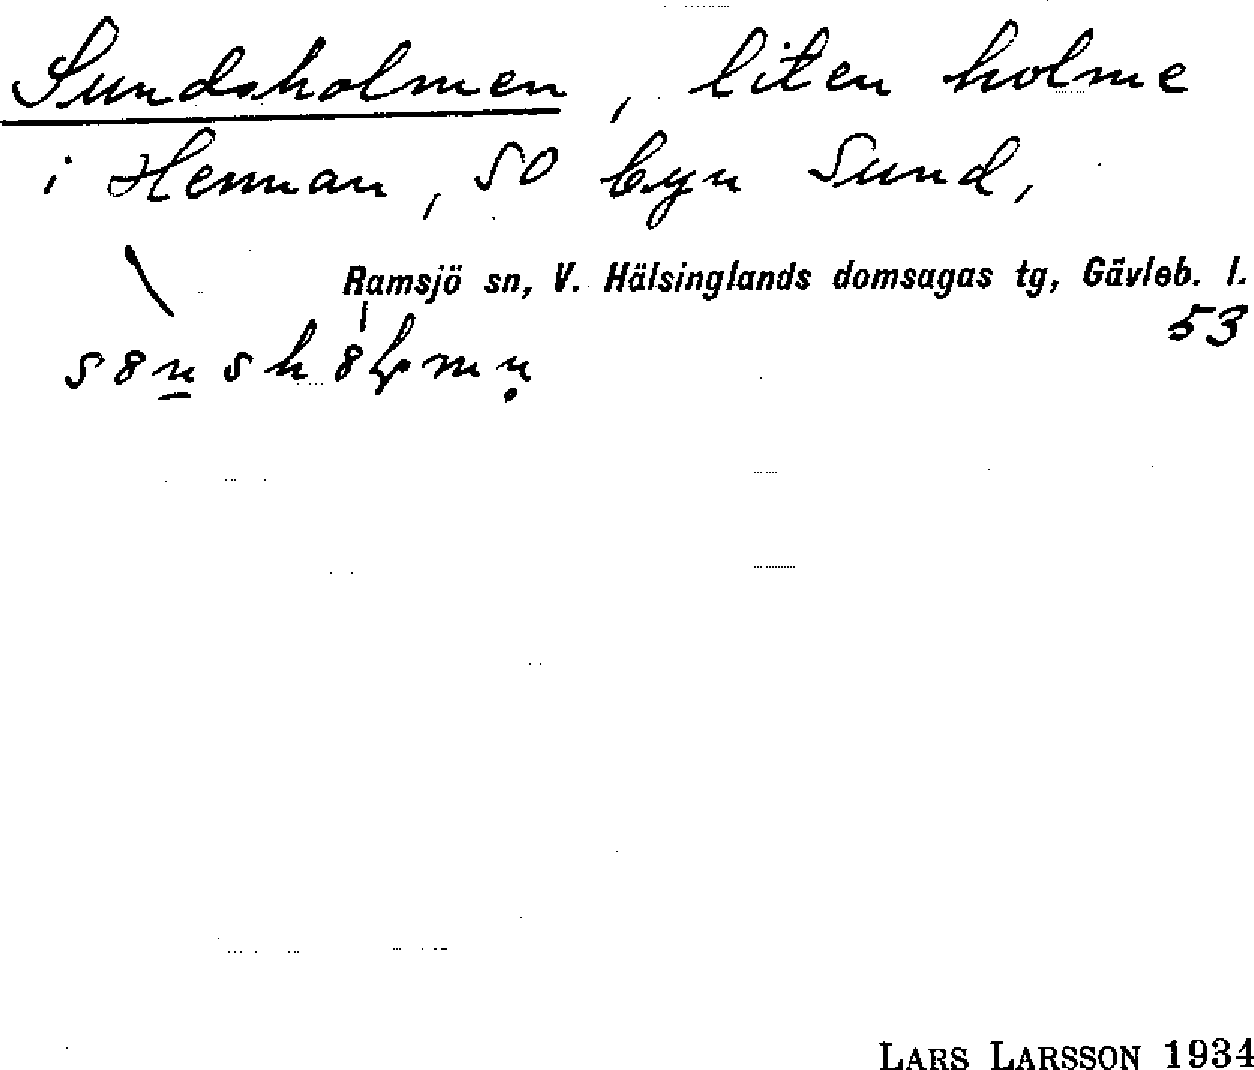 Sundsholmen, liten holme
i Hennan, SO byn Sund,
Ramsjö sn, V. Hälsinglands domsagas tg, Gävleb. l.
53
LARS LARSSON 1934